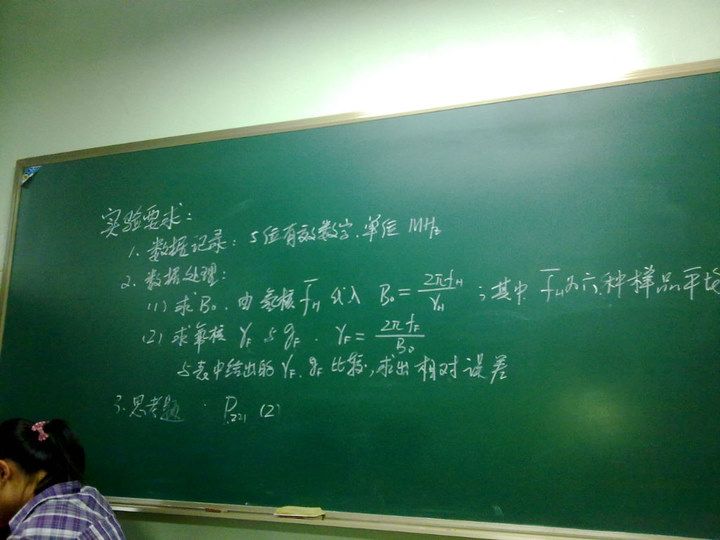 实验要求：
1. 数据记录：5位有效数字，单位 MHz
2. 数据处理：
(1) 求B₀，由氢核 f̅_H 代入 B₀ = 2πf_H / γ_H ；其中 f̅_H为六种样品平均
(2) 求氟核 γ_F 与 g_F . γ_F = 2πf_F / B₀
与表中给出的 γ_F、g_F 比较，求出相对误差
3. 思考题 . P₂₂₁ (2)